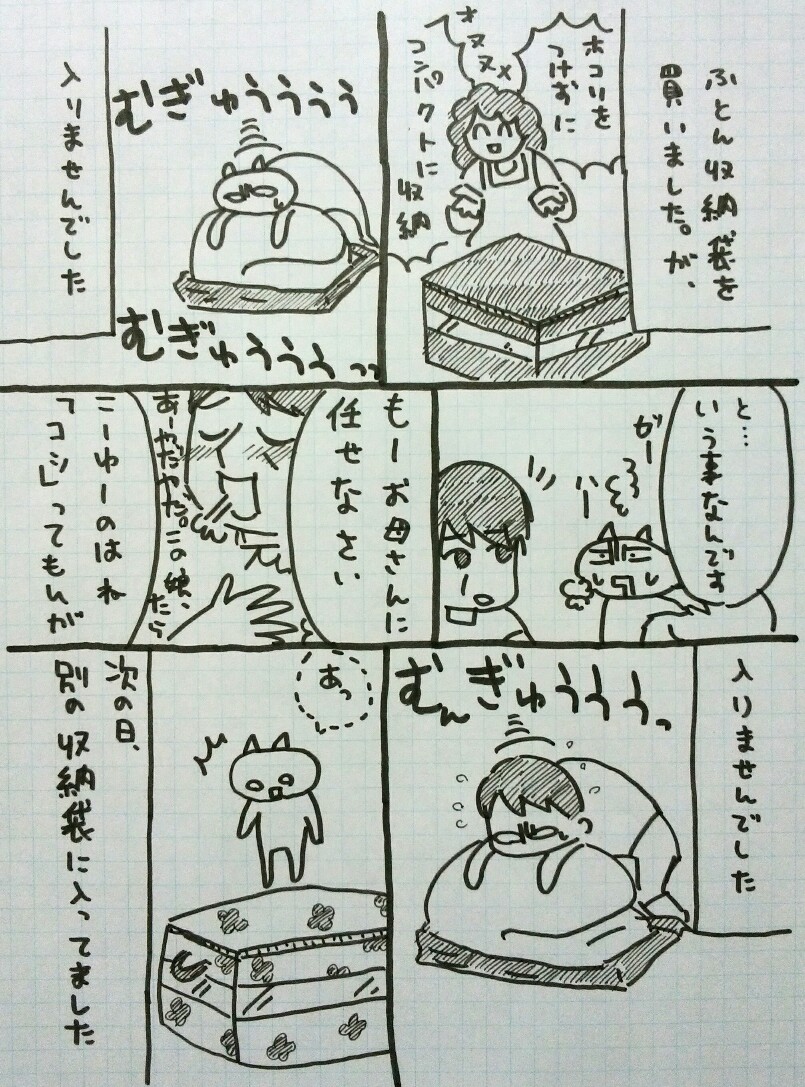 ふとん収納袋を
買いました。が、
ホコリを
つけずに
コンパクトに
収納
オススメ
むぎゅうううう
むぎゅうううっっ
入りませんでした
と…
いう事なんです
ガー
ハー
もーお母さんに
任せなさい
あーやだやだ。この娘、たら
こーゆーのはね
「コシ」ってもんが
入りませんでした
むんぎゅうううっ
あっ
次の日、
別の収納袋に入ってました